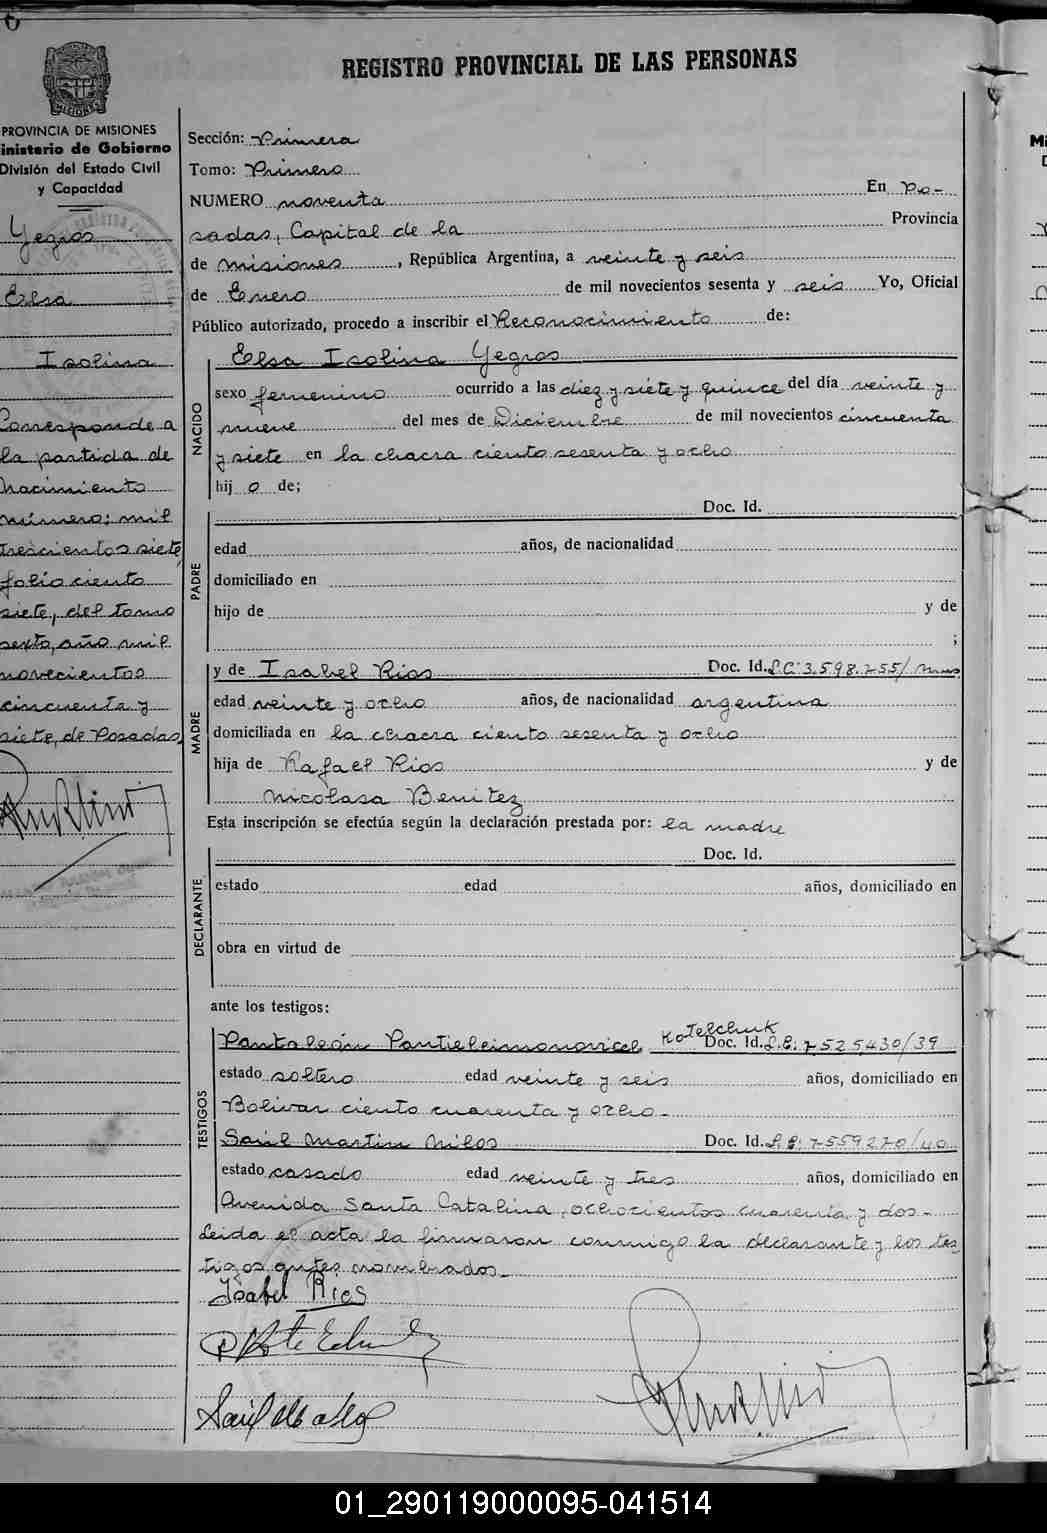 REGISTRO PROVINCIAL DE LAS PERSONAS
MISIONES
PROVINCIA DE MISIONES
inisterio de Gobierno
División del Estado Civil
y Capacidad
Yegros
Elsa
Isolina
Corresponde a
la partida de
nacimiento
número: mil
trescientos siete,
folio ciento
siete, del tomo
sexto, año mil
novecientos
cincuenta y
siete, de Posadas
Sección: Primera
Tomo: Primero
NUMERO noventa En Po-
sadas, Capital de la Provincia
de misiones, República Argentina, a veinte y seis
de Enero de mil novecientos sesenta y seis Yo, Oficial
Público autorizado, procedo a inscribir el Reconocimiento de:
Elsa Isolina Yegros
NACIDO
sexo femenino ocurrido a las diez y siete y quince del día veinte y
nueve del mes de Diciembre de mil novecientos cincuenta
y siete en la chacra ciento sesenta y ocho
hij o de;
PADRE
Doc. Id.
edad años, de nacionalidad
domiciliado en
hijo de y de
;
MADRE
y de Isabel Rios Doc. Id. L.C: 3.598.255/ mns
edad veinte y ocho años, de nacionalidad argentina
domiciliada en la chacra ciento sesenta y ocho
hija de Rafael Rios y de
Nicolasa Benitez
Esta inscripción se efectúa según la declaración prestada por: la madre
DECLARANTE
Doc. Id.
estado edad años, domiciliado en
obra en virtud de
ante los testigos:
TESTIGOS
Pantaleón Pantieleimonovicel Kotelchuk Doc. Id. L.E: 7525430/39
estado soltero edad veinte y seis años, domiciliado en
Bolivar ciento cuarenta y ocho.-
Saúl Martin Milos Doc. Id. L.E: 7559270/40
estado casado edad veinte y tres años, domiciliado en
Avenida Santa Catalina, ochocientos cuarenta y dos.-
Leida el acta la firmaron conmigo la declarante y los tes
tigos antes nombrados.-
Isabel Rios
01_290119000095-041514